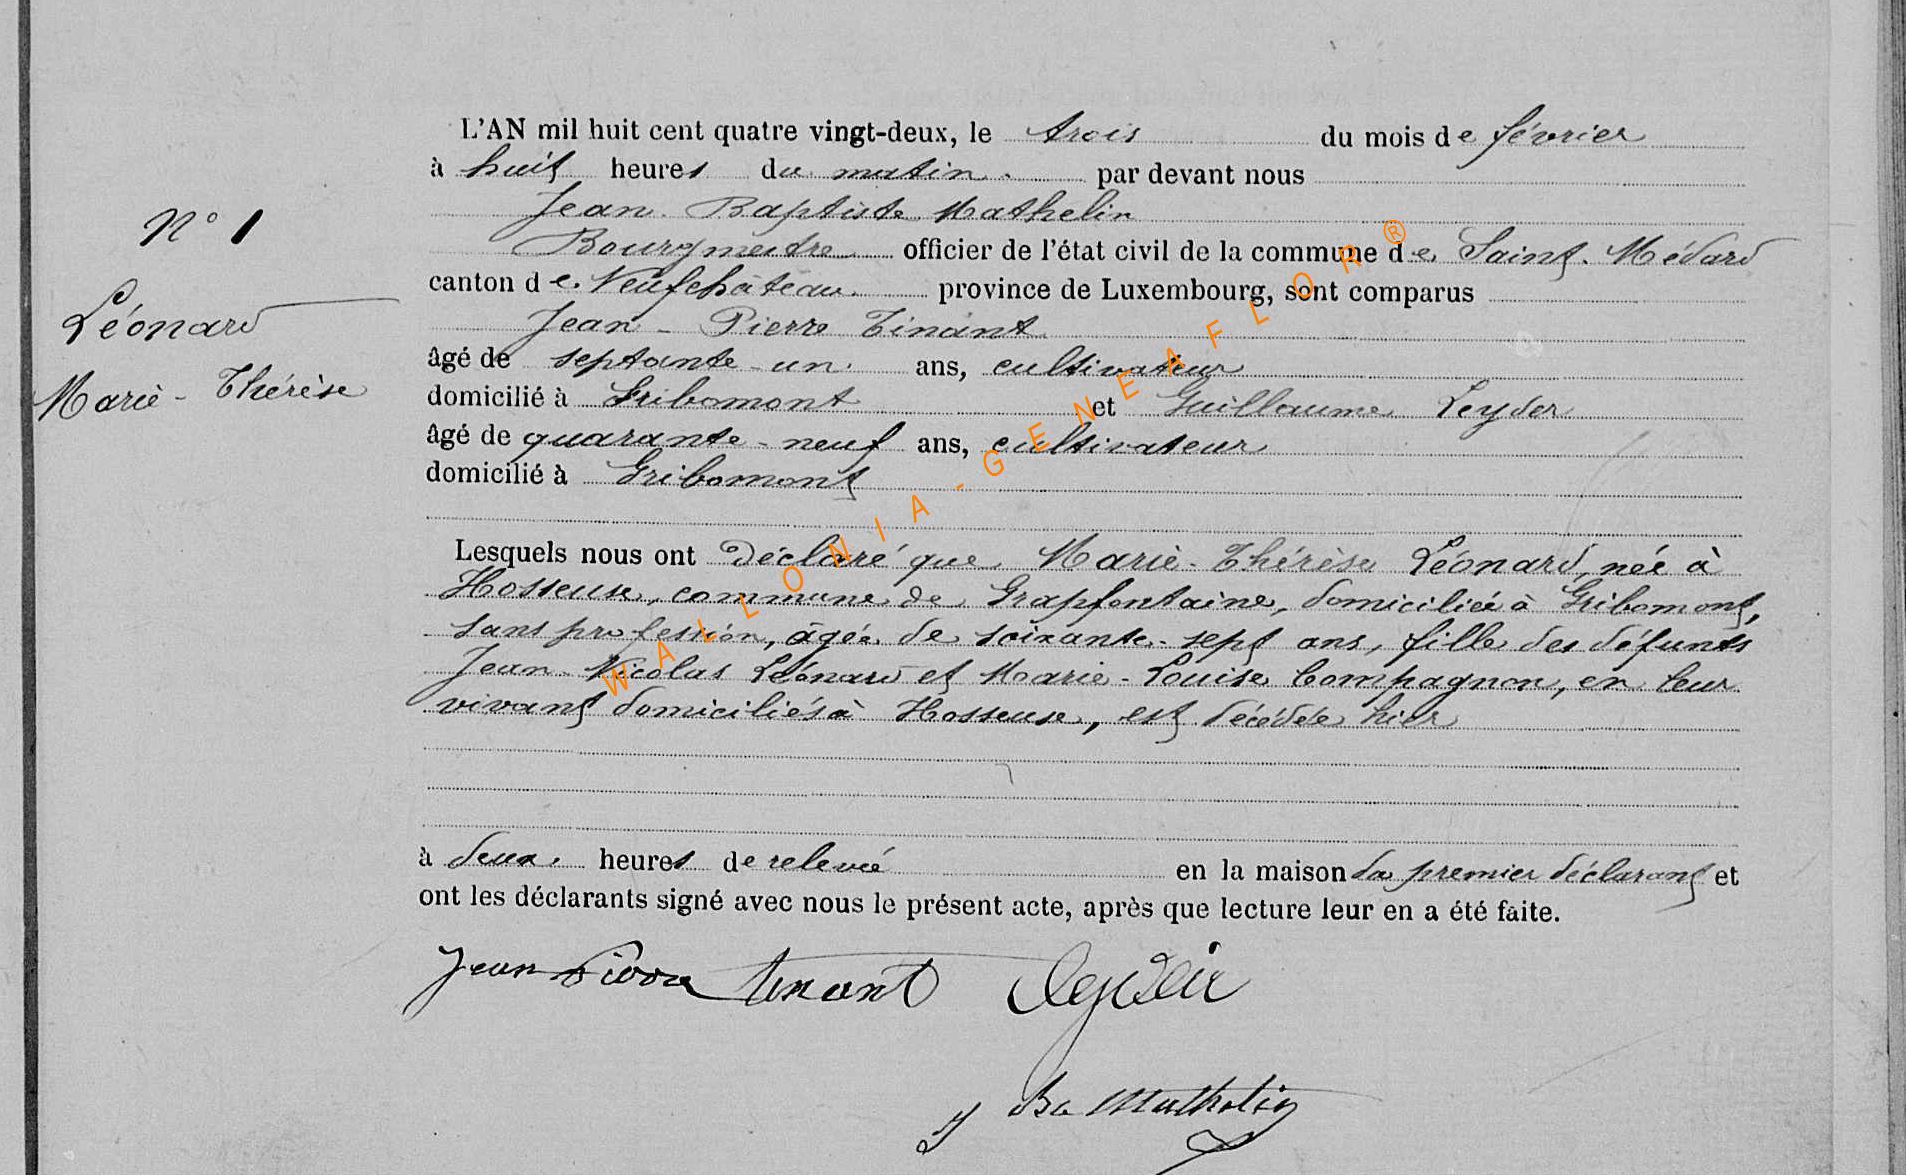 L'AN mil huit cent quatre vingt-deux, le trois du mois de février
à huit heures du matin. par devant nous
Jean Baptiste Mathelin
Bourgmestre officier de l'état civil de la commune de Saint-Médard
canton de Neufchâteau province de Luxembourg, sont comparus
Jean-Pierre Tinant
âgé de septante-un ans, cultivateur
domicilié à Gribomont et Guillaume Leyder
âgé de quarante-neuf ans, cultivateur
domicilié à Gribomont
N° 1
Léonard
Marie-Thérèse
Lesquels nous ont déclaré que Marie-Thérèse Léonard, née à
Hosseuse, commune de Grapfontaine, domiciliée à Gribomont,
sans profession, âgée de soixante-sept ans, fille des défunts
Jean-Nicolas Léonard et Marie-Louise Compagnon, en leur
vivant domiciliés à Hosseuse, est décédée hier
à deux heures de relevée en la maison du premier déclarant et
ont les déclarants signé avec nous le présent acte, après que lecture leur en a été faite.
Jean Pierre tinant Leyder
J Bte Mathelin
WALLONIA-GENEAFLOR®